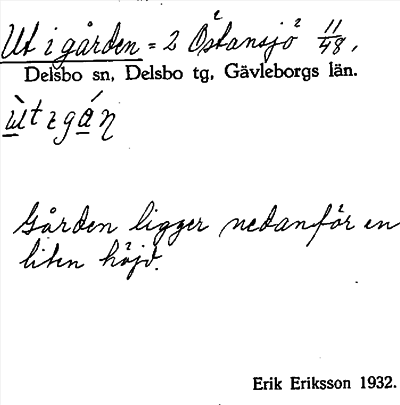 Ut i gården = 2 Östansjö 11/48,
Delsbo sn, Delsbo tg, Gävleborgs län.
ùt ɩ gáη
Gården ligger nedanför en
liten höjd.
Erik Eriksson 1932.